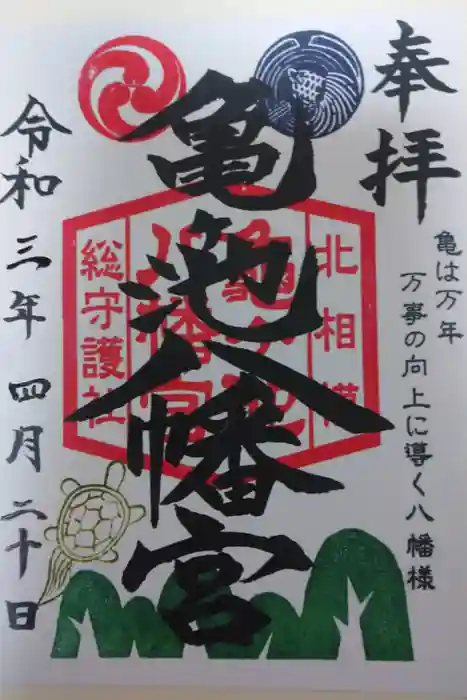 奉拝
亀は万年
万事の向上に導く八幡様
亀池八幡宮
北相模
総守護社
令和三年四月二十日